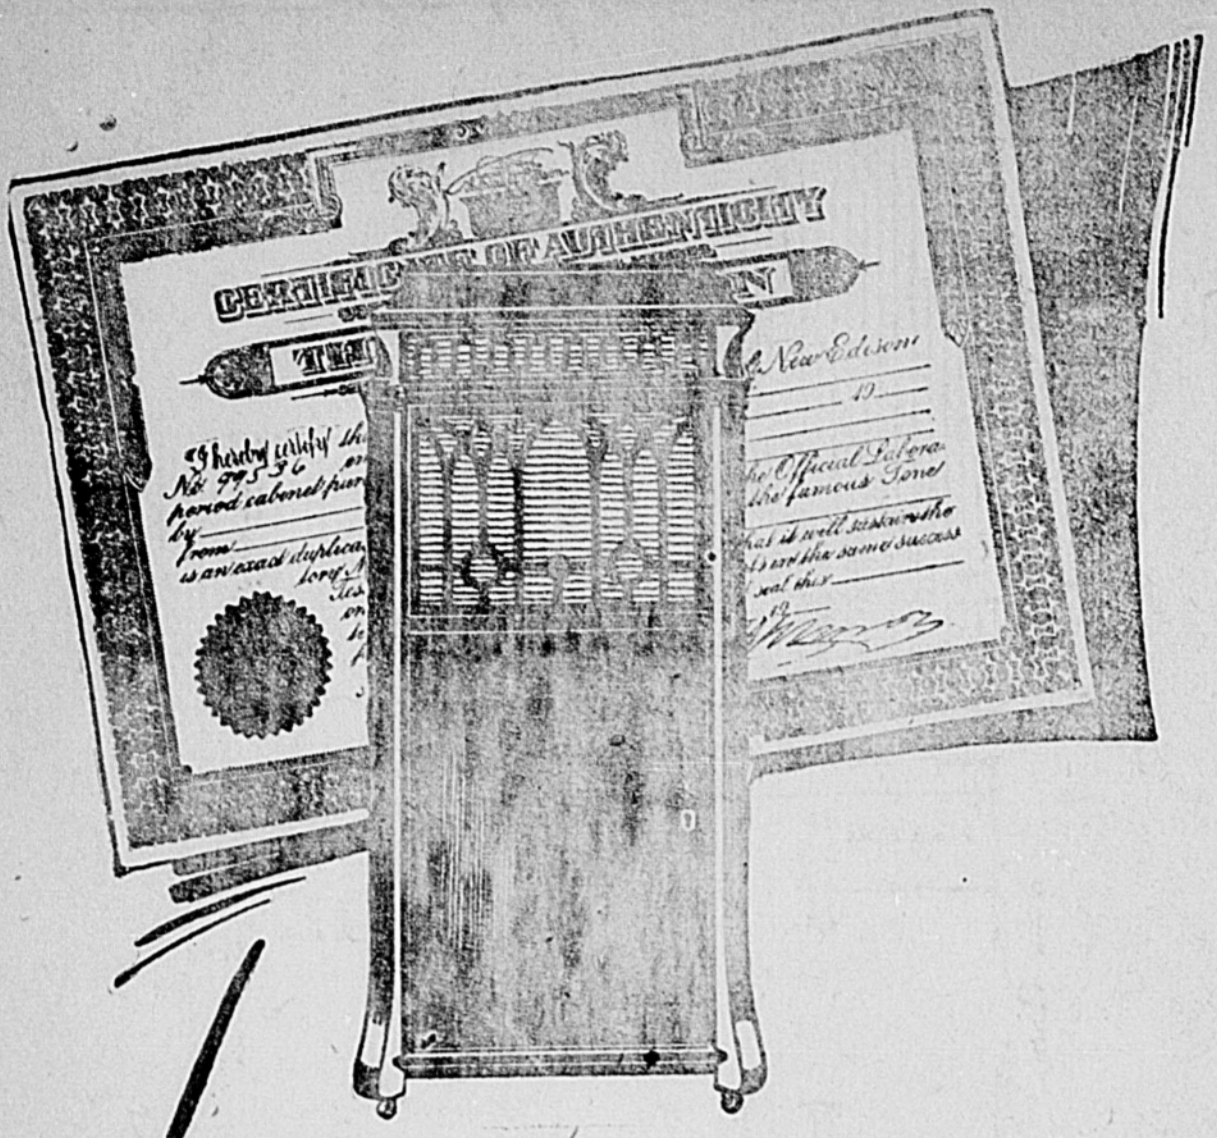 CERTIFIC OF AUTHENTICITY
TH N
New Edison
19
I hereby certify th
No. 99536
period cabinet pur
by
from
is an exact duplica
tory
the Official Labora
the famous Tone
hat it will sustain the
the same success
seal this
19